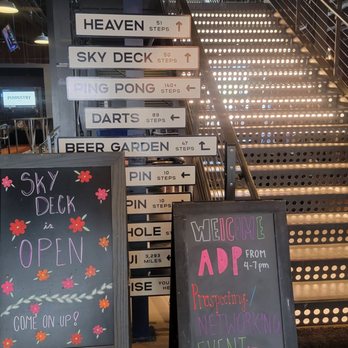 HEAVEN 51 STEPS
SKY DECK 50 STEPS
PING PONG 140+ STEPS
DARTS 88 STEPS
BEER GARDEN 67 STEPS
PIN
STEPS
PIN
STEPS
HOLE
STEPS
MILES
ISE YOU
HERE
SKY
DECK
is
OPEN
COME ON UP!
WELCOME
ADP FROM
4-7pm
Prospecting/
NETWORKING
EVENT